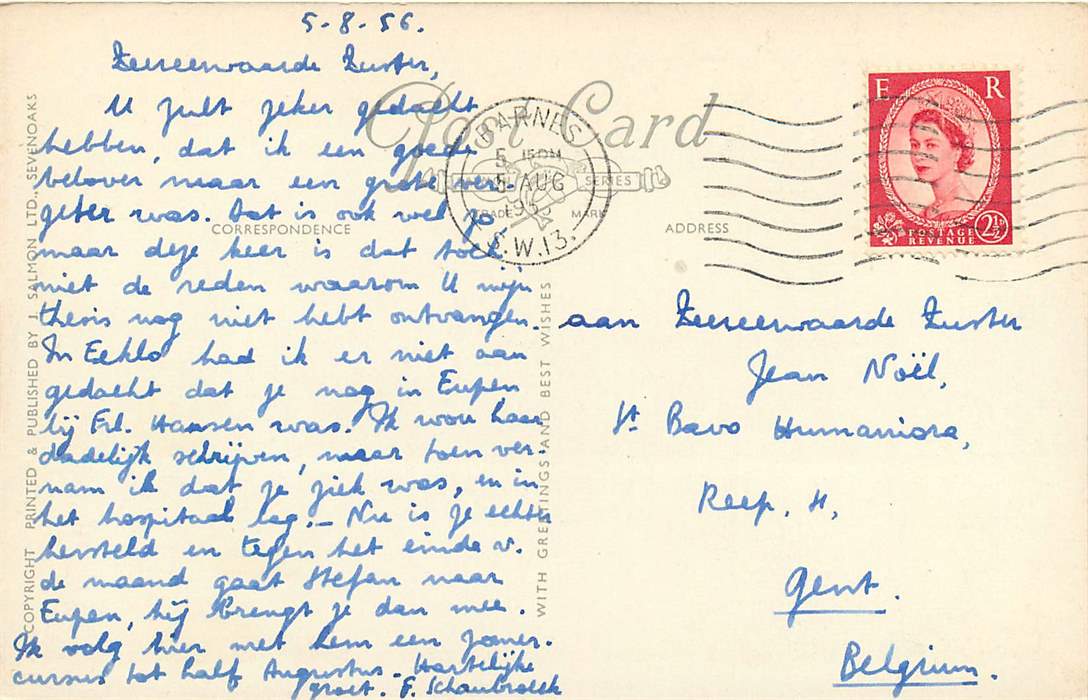 5-8-56.
Zeereerwaarde Zuster,
U zult zeker gedacht
hebben, dat ik een goede
belover maar een grote ver-
geter was. Dat is ook wel zo
maar deze keer is dat toch
niet de reden waarom U mijn
thesis nog niet hebt ontvangen.
In Eeklo had ik er niet aan
gedacht dat ze nog in Eupen
bij Frl. Hansen was. Ik wou haar
dadelijk schrijven, maar toen ver-
nam ik dat ze ziek was, en in
het hospitaal lag. – Nu is ze echter
hersteld en tegen het einde v.
de maand gaat Stefan naar
Eupen, hij brengt ze dan mee.
Ik volg hier met hem een zomer-
cursus tot half Augustus. Hartelijke
groet. F. Schaubroeck
Post Card
SERIES
TRADE MARK
CORRESPONDENCE
ADDRESS
BARNES
5 AUG
S.W.13.
E R
POSTAGE
REVENUE
2½D
aan Zeereerwaarde Zuster
Jean Noël,
St Bavo Humaniora,
Reep, 4,
Gent.
Belgium.
COPYRIGHT PRINTED & PUBLISHED BY J. SALMON LTD. SEVENOAKS
WITH GREETINGS AND BEST WISHES